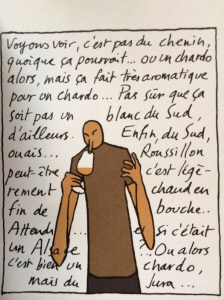 Voyons voir, c'est pas du chenin,
quoique ça pourrait... ou un chardo
alors, mais ça fait très aromatique
pour un chardo... Pas sûr que ça
soit pas un blanc du Sud,
d'ailleurs. Enfin, du Sud,
ouais... Roussillon
peut-être c'est légè-
rement chaud en
fin de bouche...
Attends... Si c'était
un Alsace ...Ou alors
c'est bien un chardo,
mais du Jura...